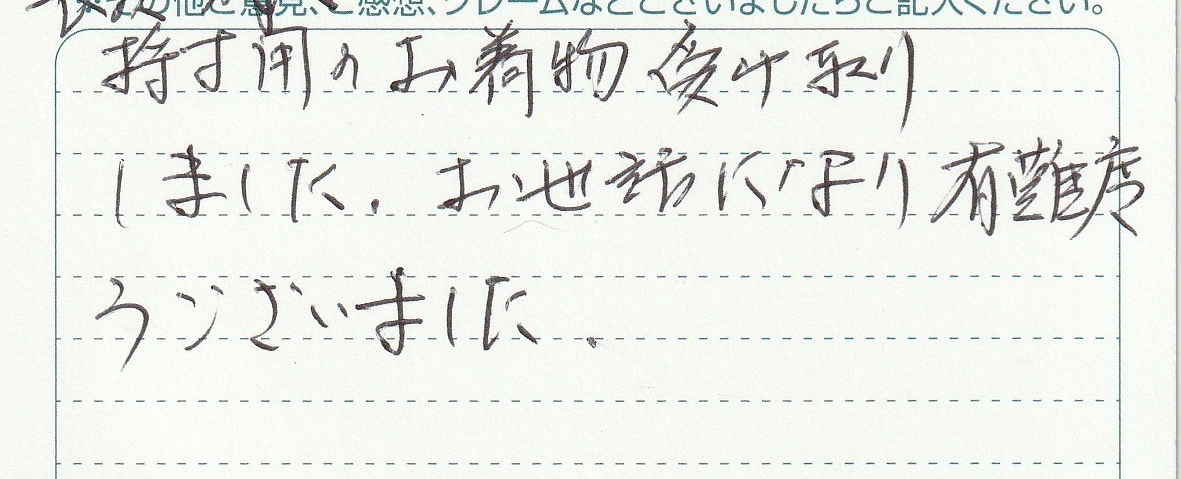 その他ご意見、ご感想、クレームなどございましたらご記入ください。
お荷物受け取り
しました。お世話になり有難度
うございました。